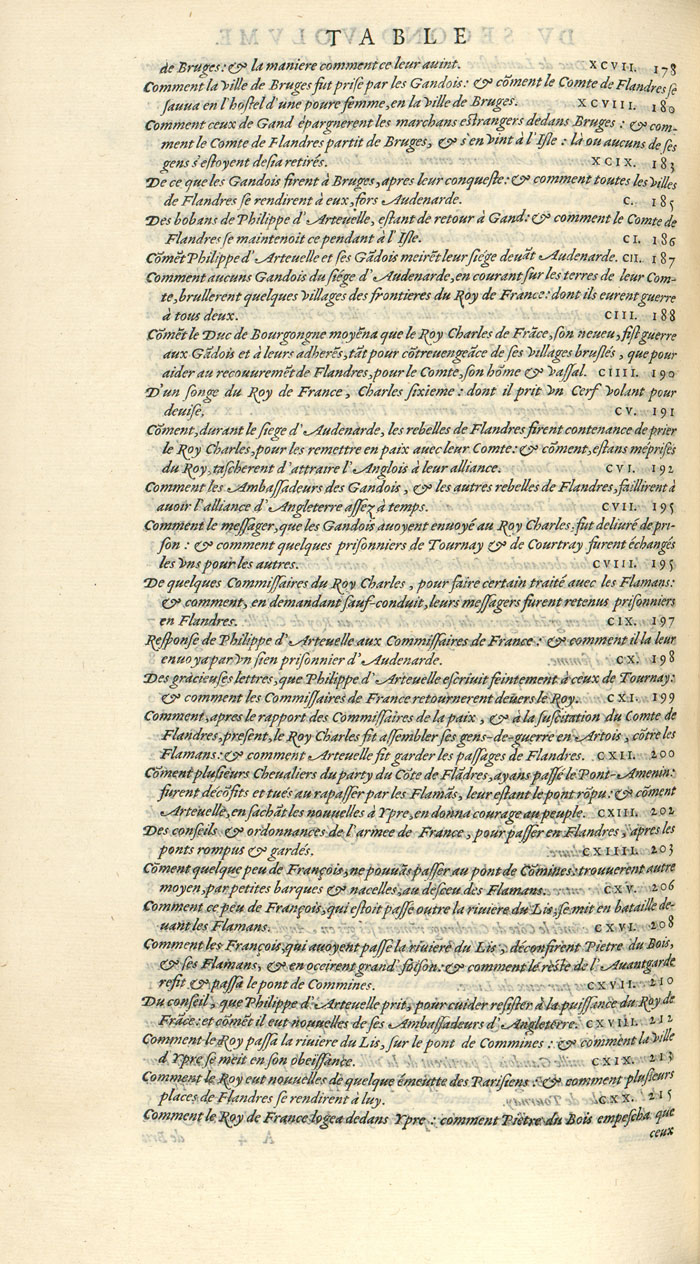 TABLE
de Bruges: & la maniere comment ce leur auint. XCVII. 178
Comment la ville de Bruges fut prise par les Gandois: & cõment le Comte de Flandres se
sauua en l'hostel d'une poure femme, en la ville de Bruges. XCVIII. 180
Comment ceux de Gand épargnerent les marchans estrangers dedans Bruges: & com-
ment le Comte de Flandres partit de Bruges, & s'en vint à l'Isle: là ou aucuns de ses
gens s'estoyent desia retirés. XCIX. 183
De ce que les Gandois firent à Bruges, apres leur conqueste: & comment toutes les villes
de Flandres se rendirent à eux, fors Audenarde. C. 185
Des bobans de Philippe d'Arteuelle, estant de retour à Gand: & comment le Comte de
Flandres se maintenoit ce pendant à l'Isle. CI. 186
Cõmẽt Philippe d'Arteuelle et ses Gãdois meirẽt leur siége deuãt Audenarde. CII. 187
Comment aucuns Gandois du siége d'Audenarde, en courant sur les terres de leur Com-
te, brullerent quelques villages des frontieres du Roy de France: dont ils eurent guerre
à tous deux. CIII. 188
Cõmẽt le Duc de Bourgongne moyẽna que le Roy Charles de Frãce, son neueu, fist guerre
aux Gãdois et à leurs adherẽs, tãt pour cõtreuengeãce de ses villages bruslés, que pour
aider au recouuremẽt de Flandres, pour le Comte, son hõme & vassal. CIIII. 190
D'un songe du Roy de France, Charles sixieme: dont il prit vn Cerf volant pour
deuise. CV. 191
Cõment, durant le siege d'Audenarde, les rebelles de Flandres firent contenance de prier
le Roy Charles, pour les remettre en paix auec leur Comte: & cõment, estans méprisés
du Roy, tascherent d'attraire l'Anglois à leur alliance. CVI. 192
Comment les Ambassadeurs des Gandois, & les autres rebelles de Flandres, faillirent à
auoir l'alliance d'Angleterre assez à temps. CVII. 195
Comment le messager, que les Gandois auoyent enuoyé au Roy Charles, fut deliuré de pri-
son: & comment quelques prisonniers de Tournay & de Courtray furent échangés
les vns pour les autres. CVIII. 195
De quelques Commissaires du Roy Charles, pour faire certain traité auec les Flamans:
& comment, en demandant sauf-conduit, leurs messagers furent retenus prisonniers
en Flandres. CIX. 197
Response de Philippe d'Arteuelle aux Commissaires de France: & comment il la leur
enuoya par vn sien prisonnier d'Audenarde. CX. 198
Des gracieuses lettres, que Philippe d'Arteuelle escriuit feintement à ceux de Tournay:
& comment les Commissaires de France retournerent deuers le Roy. CXI. 199
Comment, apres le rapport des Commissaires de la paix, & à la suscitation du Comte de
Flandres, present, le Roy Charles fit assembler ses gens-de-guerre en Artois, cõtre les
Flamans: & comment Arteuelle fit garder les passages de Flandres. CXII. 200
Cõment plusieurs Cheualiers du party du Cõte de Flãdres, ayans passé le Pont-Amenin:
furent décõfits et tués au rapasser par les Flamãs, leur estant le pont rõpu: & cõment
Arteuelle, en sachãt les nouuelles à Ypre, en donna courage au peuple. CXIII. 202
Des conseils & ordonnances de l'armee de France, pour passer en Flandres, apres les
ponts rompus & gardés. CXIIII. 203
Cõment quelque peu de François, ne pouuãs passer au pont de Cõmines: trouuerent autre
moyen, par petites barques & nacelles, au desceu des Flamans. CXV. 206
Comment ce peu de François, qui estoit passé outre la riuiere du Lis, se mit en bataille de-
uant les Flamans. CXVI. 208
Comment les François, qui auoyent passé la riuiere du Lis, déconfirent Pietre du Bois,
& ses Flamans, & en occirent grand' foison: & comment le reste de l'Auantgarde
refit & passa le pont de Commines. CXVII. 210
Du conseil, que Philippe d'Arteuelle prit, pour cuider resister à la puissance du Roy de
Frãce: et cõmẽt il eut nouuelles de ses Ambassadeurs d'Angleterre. CXVIII. 212
Comment le Roy passa la riuiere du Lis, sur le pont de Commines: & comment la ville
d'Ypre se meit en son obeissance. CXIX. 213
Comment le Roy eut nouuelles de quelque émeutte des Parisiens: & comment plusieurs
places de Flandres se rendirent à luy. CXX. 215
Comment le Roy de France logea dedans Ypre: comment Pietre du Bois empescha que
ceux